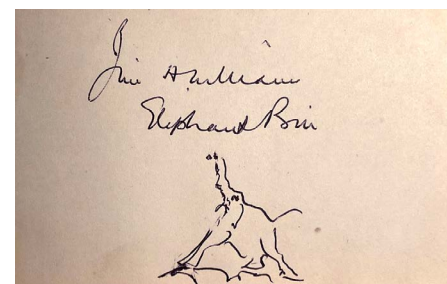 Jim Williams
Elephant Bill